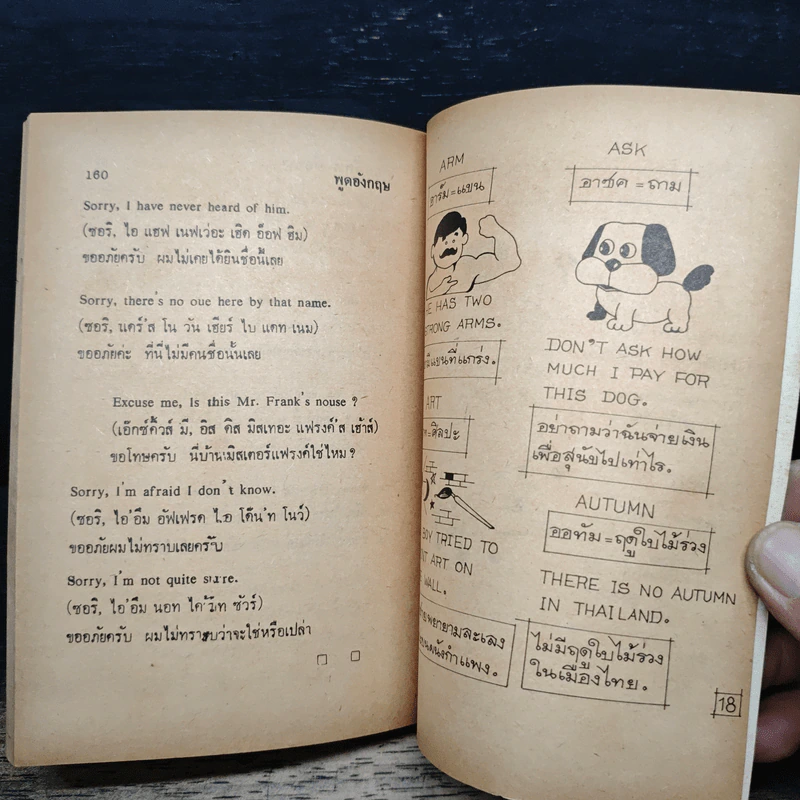 160
พูดอังกฤษ
Sorry, I have never heard of him.
(ซอริ, ไอ แฮฟ เนฟเว่อะ เฮิด อ็อฟ ฮิม)
ขออภัยครับ ผมไม่เคยได้ยินชื่อนี้เลย
Sorry, there's no oue here by that name.
(ซอริ, แดร์'ส โน วัน เฮียร์ ไบ แดท เนม)
ขออภัยค่ะ ที่นี่ไม่มีคนชื่อนั้นเลย
Excuse me, Is this Mr. Frank's nouse ?
(เอ๊กซ์คิ้วส์ มี, อิส ดิส มิสเทอะ แฟรงค์'ส เฮ้าส์)
ขอโทษครับ นี่บ้านมิสเตอร์แฟรงค์ใช่ไหม ?
Sorry, I'm afraid I don't know.
(ซอริ, ไอ'อึม อัฟเฟรด ไอ โด๊น'ท โนว์)
ขออภัยผมไม่ทราบเลยครับ
Sorry, I'm not quite sure.
(ซอริ, ไอ'อึม นอท ไคว๊ท ชัวร์)
ขออภัยครับ ผมไม่ทราบว่าจะใช่หรือเปล่า
ARM
อาร์ม=แขน
HAS TWO
STRONG ARMS.
มีแขนที่แกร่ง.
ART
=ศิลปะ
BOY TRIED TO
ART ON
WALL.
พยายามละเลง
บนผนังกำแพง.
ASK
อาซค = ถาม
DON'T ASK HOW
MUCH I PAY FOR
THIS DOG.
อย่าถามว่าฉันจ่ายเงิน
เพื่อสุนัขไปเท่าไร.
AUTUMN
ออทัม = ฤดูใบไม้ร่วง
THERE IS NO AUTUMN
IN THAILAND.
ไม่มีฤดูใบไม้ร่วง
ในเมืองไทย.
18